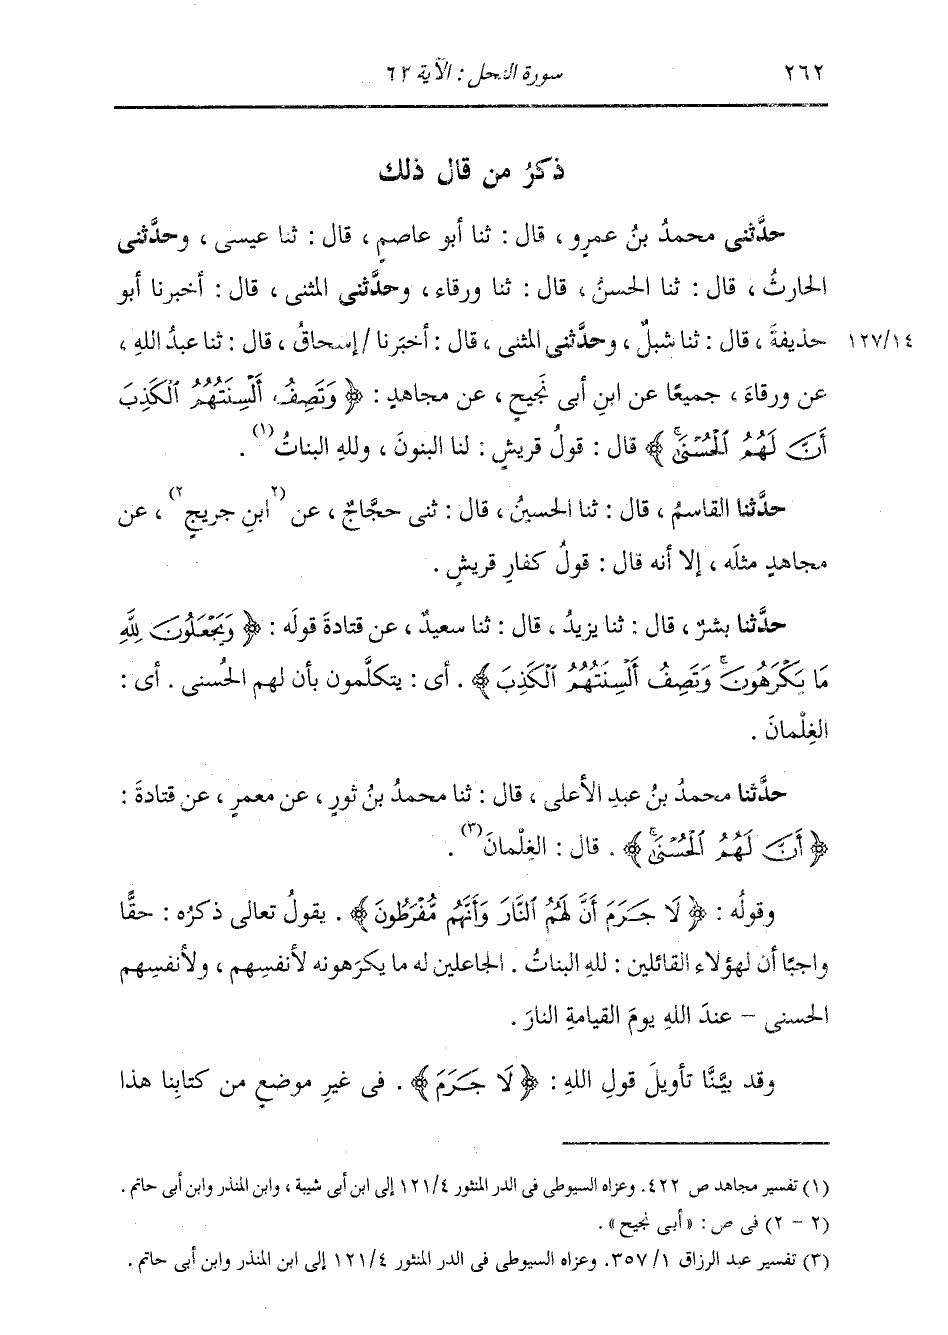 ٢٦٢
سورة النحل : الآية ٦٢
ذكرُ من قال ذلك
حدَّثنى محمدُ بنُ عمرٍو ، قال : ثنا أبو عاصمٍ ، قال : ثنا عيسى ، وحدَّثنى
الحارثُ ، قال : ثنا الحسنُ ، قال : ثنا ورقاءُ ، وحدَّثنى المثنى ، قال : أخبرنا أبو
حذيفةَ ، قال : ثنا شبلٌ ، وحدَّثنى المثنى ، قال : أخبَرنا / إسحاقُ ، قال : ثنا عبدُ اللهِ ،
١٢٧/١٤
عن ورقاءَ ، جميعًا عن ابنِ أبى نَجيحٍ ، عن مجاهدٍ : ﴿ وَتَصِفُ أَلْسِنَتُهُمُ ٱلْكَذِبَ
أَنَّ لَهُمُ ٱلْحُسْنَىٰ ﴾ قال : قولُ قريشٍ : لنا البنونَ ، وللهِ البناتُ (١) .
حدَّثنا القاسمُ ، قال : ثنا الحسينُ ، قال : ثنى حجَّاجٌ ، عن (٢ ابنِ جريجٍ ٢) ، عن
مجاهدٍ مثلَه ، إلا أنه قال : قولُ كفارِ قريشٍ .
حدَّثنا بشرٌ ، قال : ثنا يزيدُ ، قال : ثنا سعيدٌ ، عن قتادةَ قولَه : ﴿ وَيَجْعَلُونَ لِلَّهِ
مَا يَكْرَهُونَ وَتَصِفُ أَلْسِنَتُهُمُ ٱلْكَذِبَ ﴾ . أى : يتكلَّمون بأن لهم الحُسنى . أى :
الغِلْمانَ .
حدَّثنا محمدُ بنُ عبدِ الأعلى ، قال : ثنا محمدُ بنُ ثورٍ ، عن معمرٍ ، عن قتادةَ :
﴿ أَنَّ لَهُمُ ٱلْحُسْنَىٰ ﴾ . قال : الغِلْمانَ (٣) .
وقولُه : ﴿ لَا جَرَمَ أَنَّ لَهُمُ ٱلنَّارَ وَأَنَّهُم مُّفْرَطُونَ ﴾ . يقولُ تعالى ذكرُه : حقًّا
واجبًا أن لهؤلاء القائلين : للهِ البناتُ . الجاعلين له ما يكرَهونه لأنفسِهم ، ولأنفسِهم
الحسنى – عندَ اللهِ يومَ القيامةِ النارَ .
وقد بيَّنَّا تأويلَ قولِ اللهِ : ﴿ لَا جَرَمَ ﴾ . فى غيرِ موضعٍ من كتابِنا هذا
(١) تفسير مجاهد ص ٤٢٢. وعزاه السيوطى فى الدر المنثور ١٢١/٤ إلى ابن أبى شيبة ، وابن المنذر وابن أبى حاتم .
(٢ – ٢) فى ص : « أبى نجيح » .
(٣) تفسير عبد الرزاق ١/ ٣٥٧. وعزاه السيوطى فى الدر المنثور ١٢١/٤ إلى ابن المنذر وابن أبى حاتم .